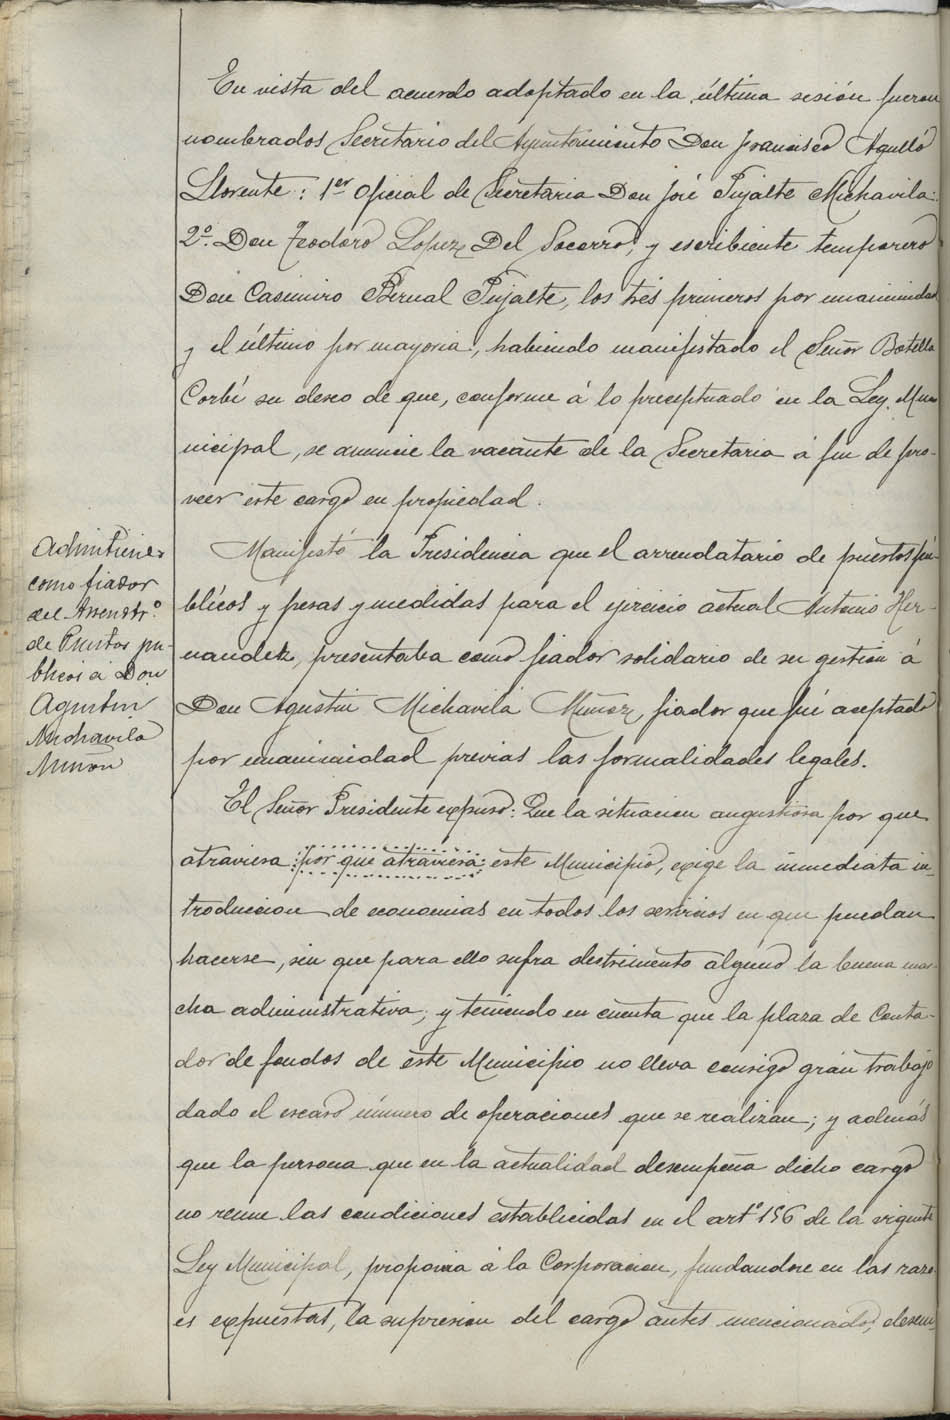 En vista del acuerdo adoptado en la última sesión fueron
nombrados Secretario del Ayuntamiento Don Francisco Agulló
Llorente: 1er Oficial de Secretaria Don José Pujalte Michavila:
2º. Don Teodoro Lopez Del Socorro, y escribiente temporero
Don Casimiro Bernal Pujalte, los tres primeros por unanimidad
y el último por mayoria, habiendo manifestado el Señor Botella
Corbí su deseo de que, conforme á lo preceptuado en la Ley Mu-
nicipal, se anuncie la vacante de la Secretaria á fin de pro-
veer este cargo en propiedad.
Manifestó la Presidencia que el arrendatario de puestos pú-
blicos y pesas y medidas para el ejercicio actual Antonio Her-
nandez, presentaba como fiador solidario de su gestión á
Don Agustin Michavila Muñoz, fiador que fué aceptado
por unanimidad previas las formalidades legales.
El Señor Presidente expuso: Que la situacion angustiosa por que
atraviesa por que atraviesa este Municipio, exige la inmediata in-
troduccion de economias en todos los servicios en que puedan
hacerse, sin que para ello sufra detrimento alguno la buena mar-
cha administrativa; y teniendo en cuenta que la plaza de Conta-
dor de fondos de este Municipio no lleva consigo grán trabajo
dado el escaso número de operaciones que se realizan; y además
que la persona que en la actualidad desempeña dicho cargo
no reune las condiciones establecidas en el artº 156 de la vigente
Ley Municipal, proponia á la Corporacion, fundandose en las razo-
es expuestas, la supresion del cargo antes mencionado, desem-
Admitiendo
como fiador
del Arrendtrº
de Puestos pu-
blicos á Don
Agustin
Michavila
Muñoz